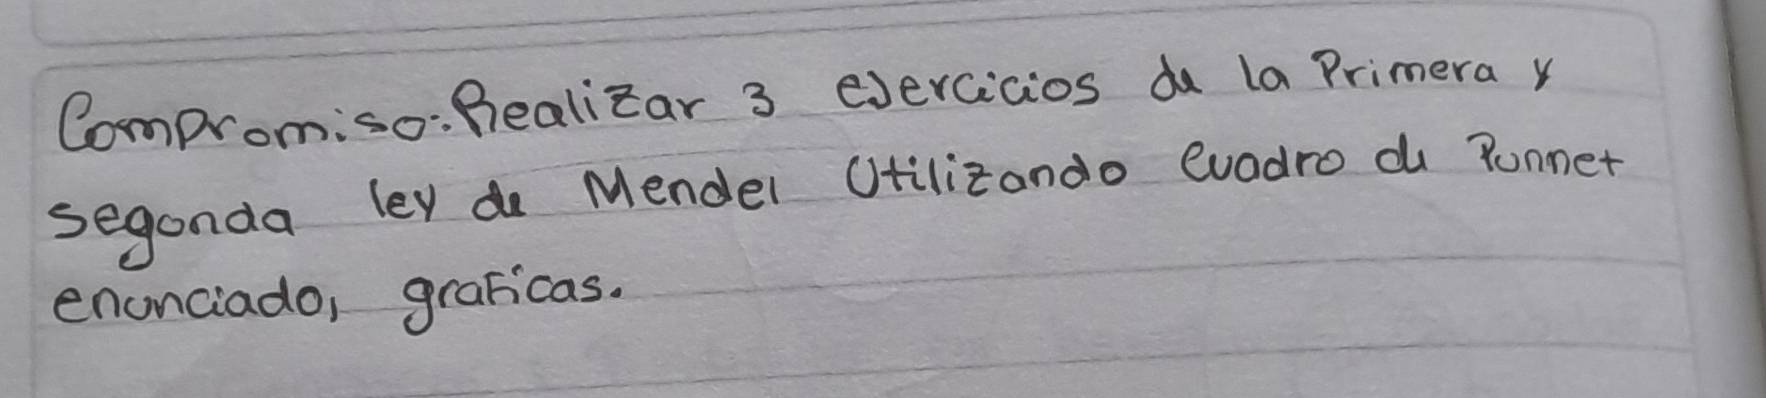 Compromiso: Realizar 3 ejercicios de la Primera y
segunda ley de Mendel Utilizando Cuadro de Punnet
enunciado, graficas.